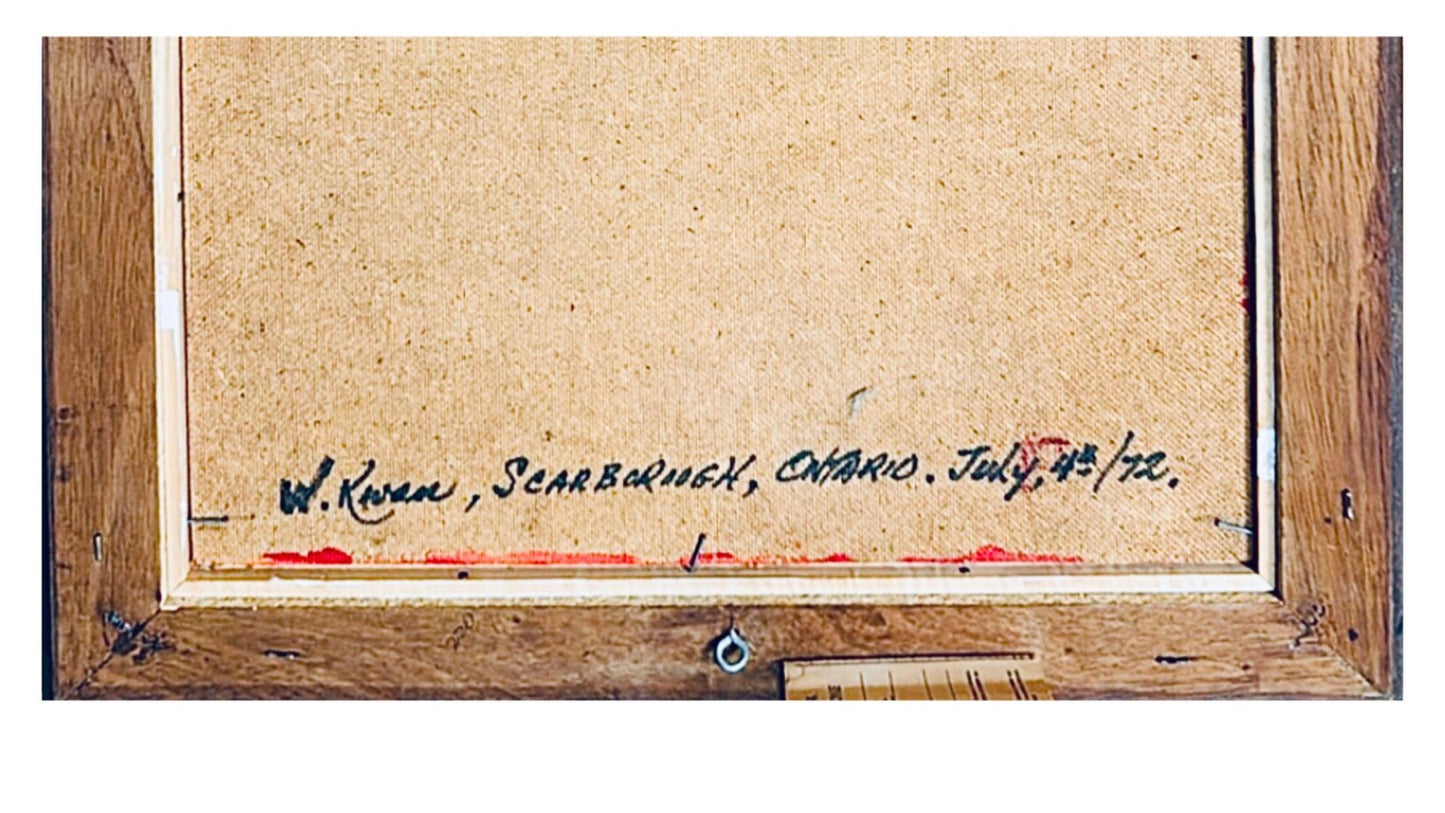 W. Kwan, SCARBOROUGH, ONTARIO. July, 4th/72.